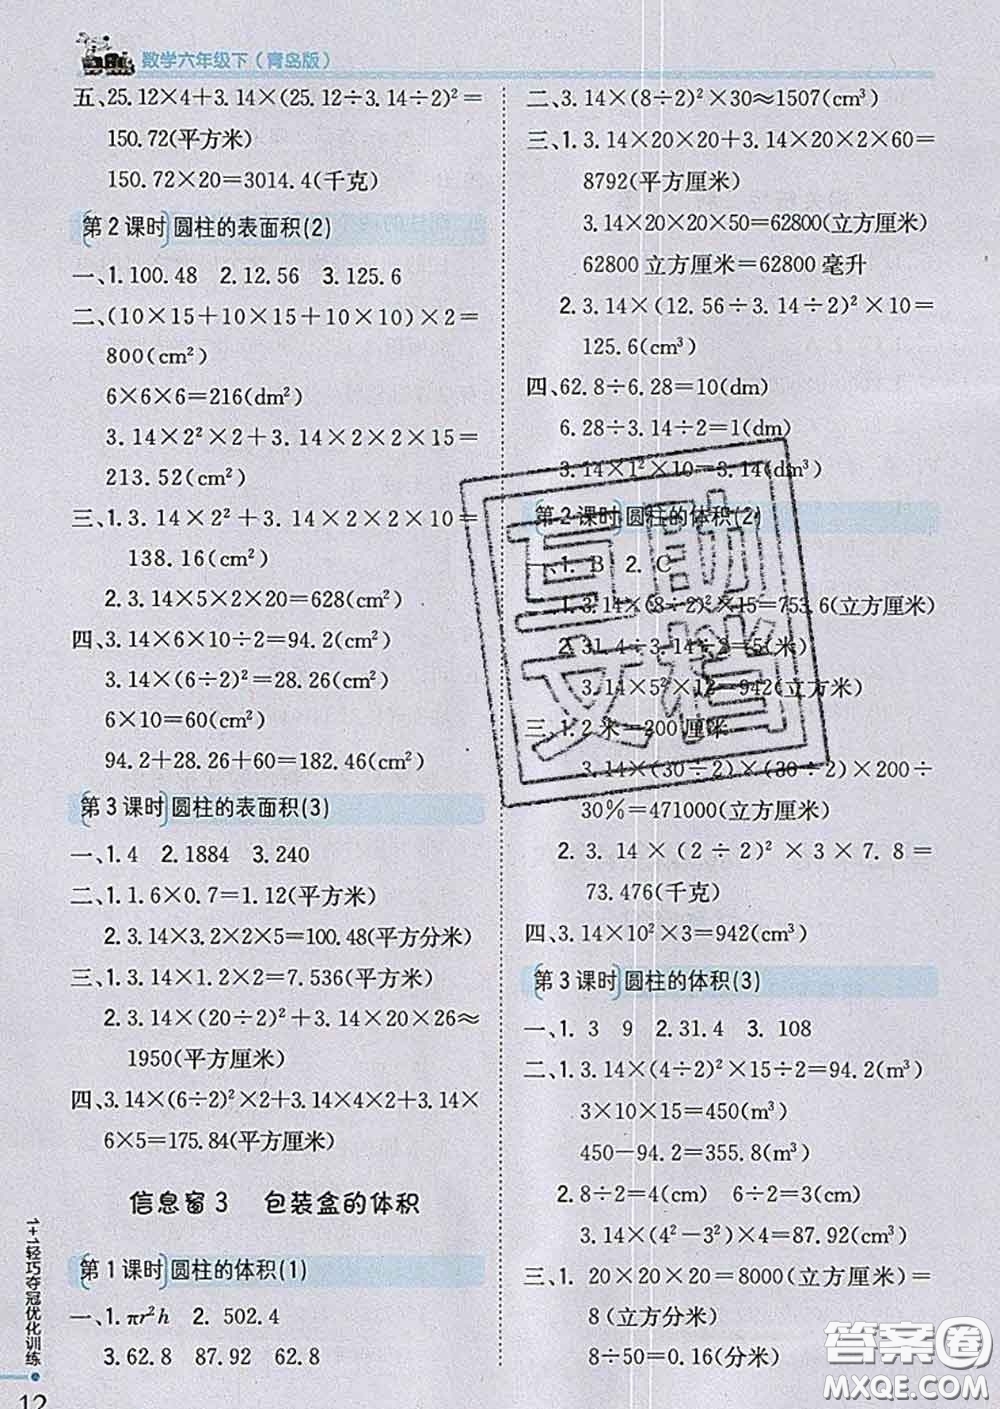 数学六年级下（青岛版）
五、25.12×4+3.14×(25.12÷3.14÷2)²=
150.72(平方米)
150.72×20=3014.4(千克)
第2课时 圆柱的表面积(2)
一、1.100.48 2.12.56 3.125.6
二、(10×15+10×10+10×15)×2=
800(cm²)
6×6×6=216(dm²)
3.14×2²×2+3.14×2×2×15=
213.52(cm²)
三、1.3.14×2²+3.14×2×2×10=
138.16(cm²)
2.3.14×5×2×20=628(cm²)
四、3.14×6×10÷2=94.2(cm²)
3.14×(6÷2)²=28.26(cm²)
6×10=60(cm²)
94.2+28.26+60=182.46(cm²)
第3课时 圆柱的表面积(3)
一、1.4 2.1884 3.240
二、1.1.6×0.7=1.12(平方米)
2.3.14×3.2×2×5=100.48(平方分米)
三、1.3.14×1.2×2=7.536(平方米)
2.3.14×(20÷2)²+3.14×20×26≈
1950(平方厘米)
四、3.14×(6÷2)²×2+3.14×4×2+3.14×
6×5=175.84(平方厘米)
信息窗3 包装盒的体积
第1课时 圆柱的体积(1)
一、1.πr²h 2.502.4
3.62.8 87.92 62.8
二、3.14×(8÷2)²×30≈1507(cm³)
三、1.3.14×20×20+3.14×20×2×60=
8792(平方厘米)
3.14×20×20×50=62800(立方厘米)
62800立方厘米=62800毫升
2.3.14×(12.56÷3.14÷2)²×10=
125.6(cm³)
四、62.8÷6.28=10(dm)
6.28÷3.14÷2=1(dm)
3.14×1²×10=3.14(dm³)
第2课时 圆柱的体积(2)
一、1.B 2.C
1.3.14×(8÷2)²×15=753.6(立方厘米)
2.31.4÷3.14÷2=5(米)
3.14×5²×12=942(立方米)
三、1.2米=200厘米
3.14×(30÷2)²×200÷
30%=471000(立方厘米)
2.3.14×(2÷2)²×3×7.8=
73.476(千克)
四、3.14×10²×3=942(cm³)
第3课时 圆柱的体积(3)
一、1.3 9 2.31.4 3.108
二、1.3.14×(4÷2)²×15÷2=94.2(m³)
3×10×15=450(m³)
450-94.2=355.8(m³)
2.8÷2=4(cm) 6÷2=3(cm)
3.14×(4²-3²)×4=87.92(cm³)
三、1.20×20×20=8000(立方厘米)=
8(立方分米)
8÷50=0.16(分米)
1+1轻巧夺冠优化训练
12
互助文档
答案圈
MXQE.COM